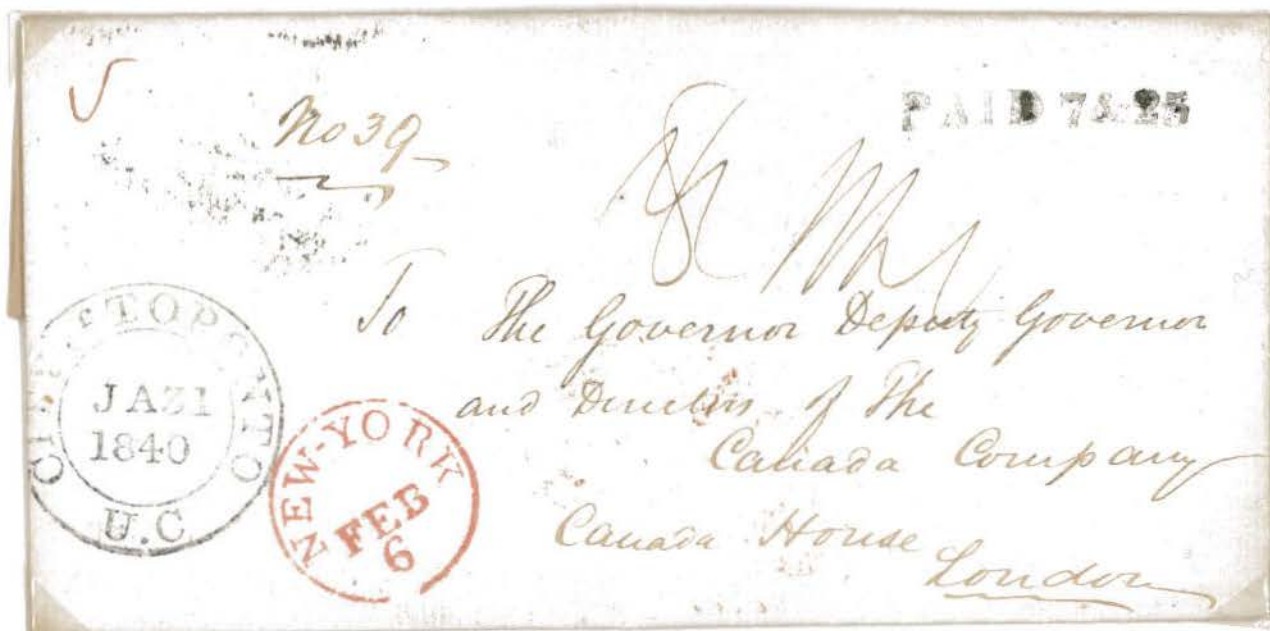 No 39
PAID 7&25
To The Governor Deputy Governor
and Directors of The
Canada Company
Canada House
London
CITY OF TORONTO
JA31
1840
U.C
NEW-YORK
FEB
6